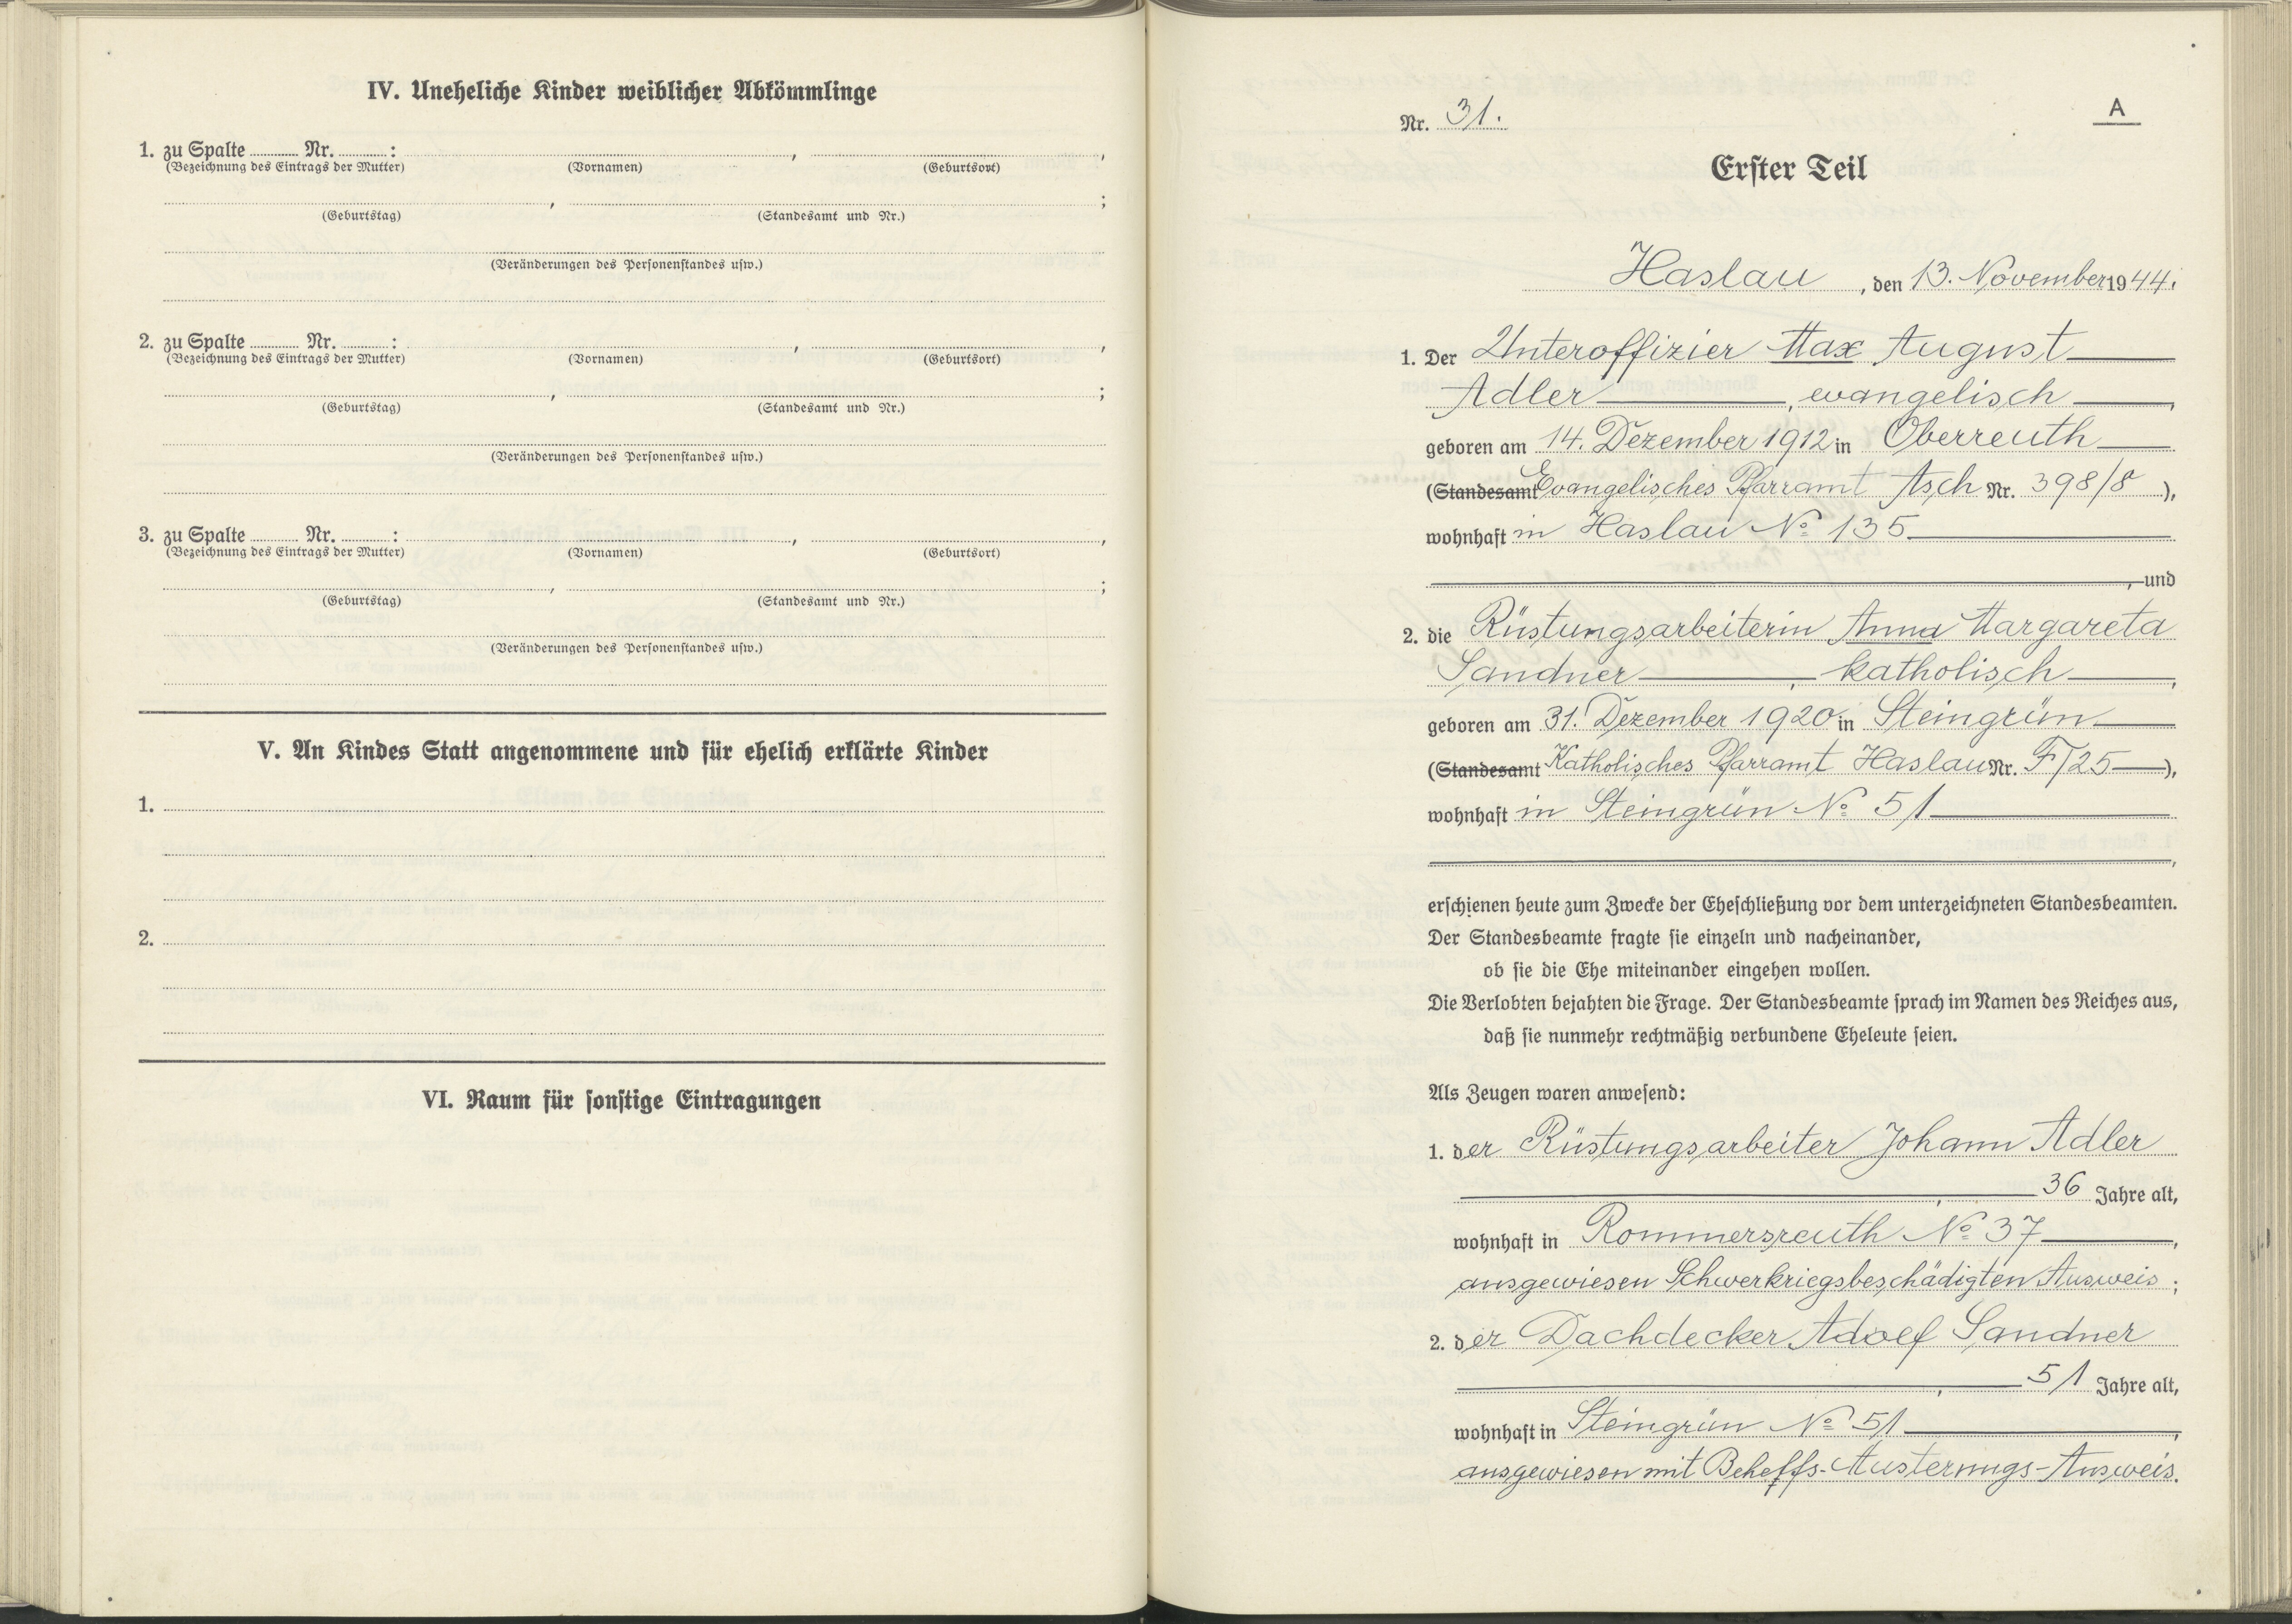 IV. Uneheliche Kinder weiblicher Abkömmlinge
1. zu Spalte ........ Nr. ........ : , ,
(Bezeichnung des Eintrags der Mutter) (Vornamen) (Geburtsort)
, ;
(Geburtstag) (Standesamt und Nr.)
(Veränderungen des Personenstandes usw.)
2. zu Spalte ........ Nr. ........ : , ,
(Bezeichnung des Eintrags der Mutter) (Vornamen) (Geburtsort)
, ;
(Geburtstag) (Standesamt und Nr.)
(Veränderungen des Personenstandes usw.)
3. zu Spalte ........ Nr. ........ : , ,
(Bezeichnung des Eintrags der Mutter) (Vornamen) (Geburtsort)
, ;
(Geburtstag) (Standesamt und Nr.)
(Veränderungen des Personenstandes usw.)
V. An Kindes Statt angenommene und für ehelich erklärte Kinder
1.
2.
VI. Raum für sonstige Eintragungen
A
Nr. 31.
Erster Teil
Haslau, den 13. November 1944.
1. Der Unteroffizier Max August
Adler, evangelisch,
geboren am 14. Dezember 1912 in Oberreuth
(Standesamt Evangelisches Pfarramt Asch Nr. 398/8),
wohnhaft in Haslau No 135
, und
2. die Rüstungsarbeiterin Anna Margareta
Sandner, katholisch,
geboren am 31. Dezember 1920 in Steingrün
(Standesamt Katholisches Pfarramt Haslau Nr. F/25),
wohnhaft in Steingrün No 51
,
erschienen heute zum Zwecke der Eheschließung vor dem unterzeichneten Standesbeamten.
Der Standesbeamte fragte sie einzeln und nacheinander,
ob sie die Ehe miteinander eingehen wollen.
Die Verlobten bejahten die Frage. Der Standesbeamte sprach im Namen des Reiches aus,
daß sie nunmehr rechtmäßig verbundene Eheleute seien.
Als Zeugen waren anwesend:
1. der Rüstungsarbeiter Johann Adler
, 36 Jahre alt,
wohnhaft in Rommersreuth No 37,
ausgewiesen Schwerkriegsbeschädigten Ausweis;
2. der Dachdecker Adolf Sandner
, 51 Jahre alt,
wohnhaft in Steingrün No 51,
ausgewiesen mit Beheffs-Musterungs-Ausweis.